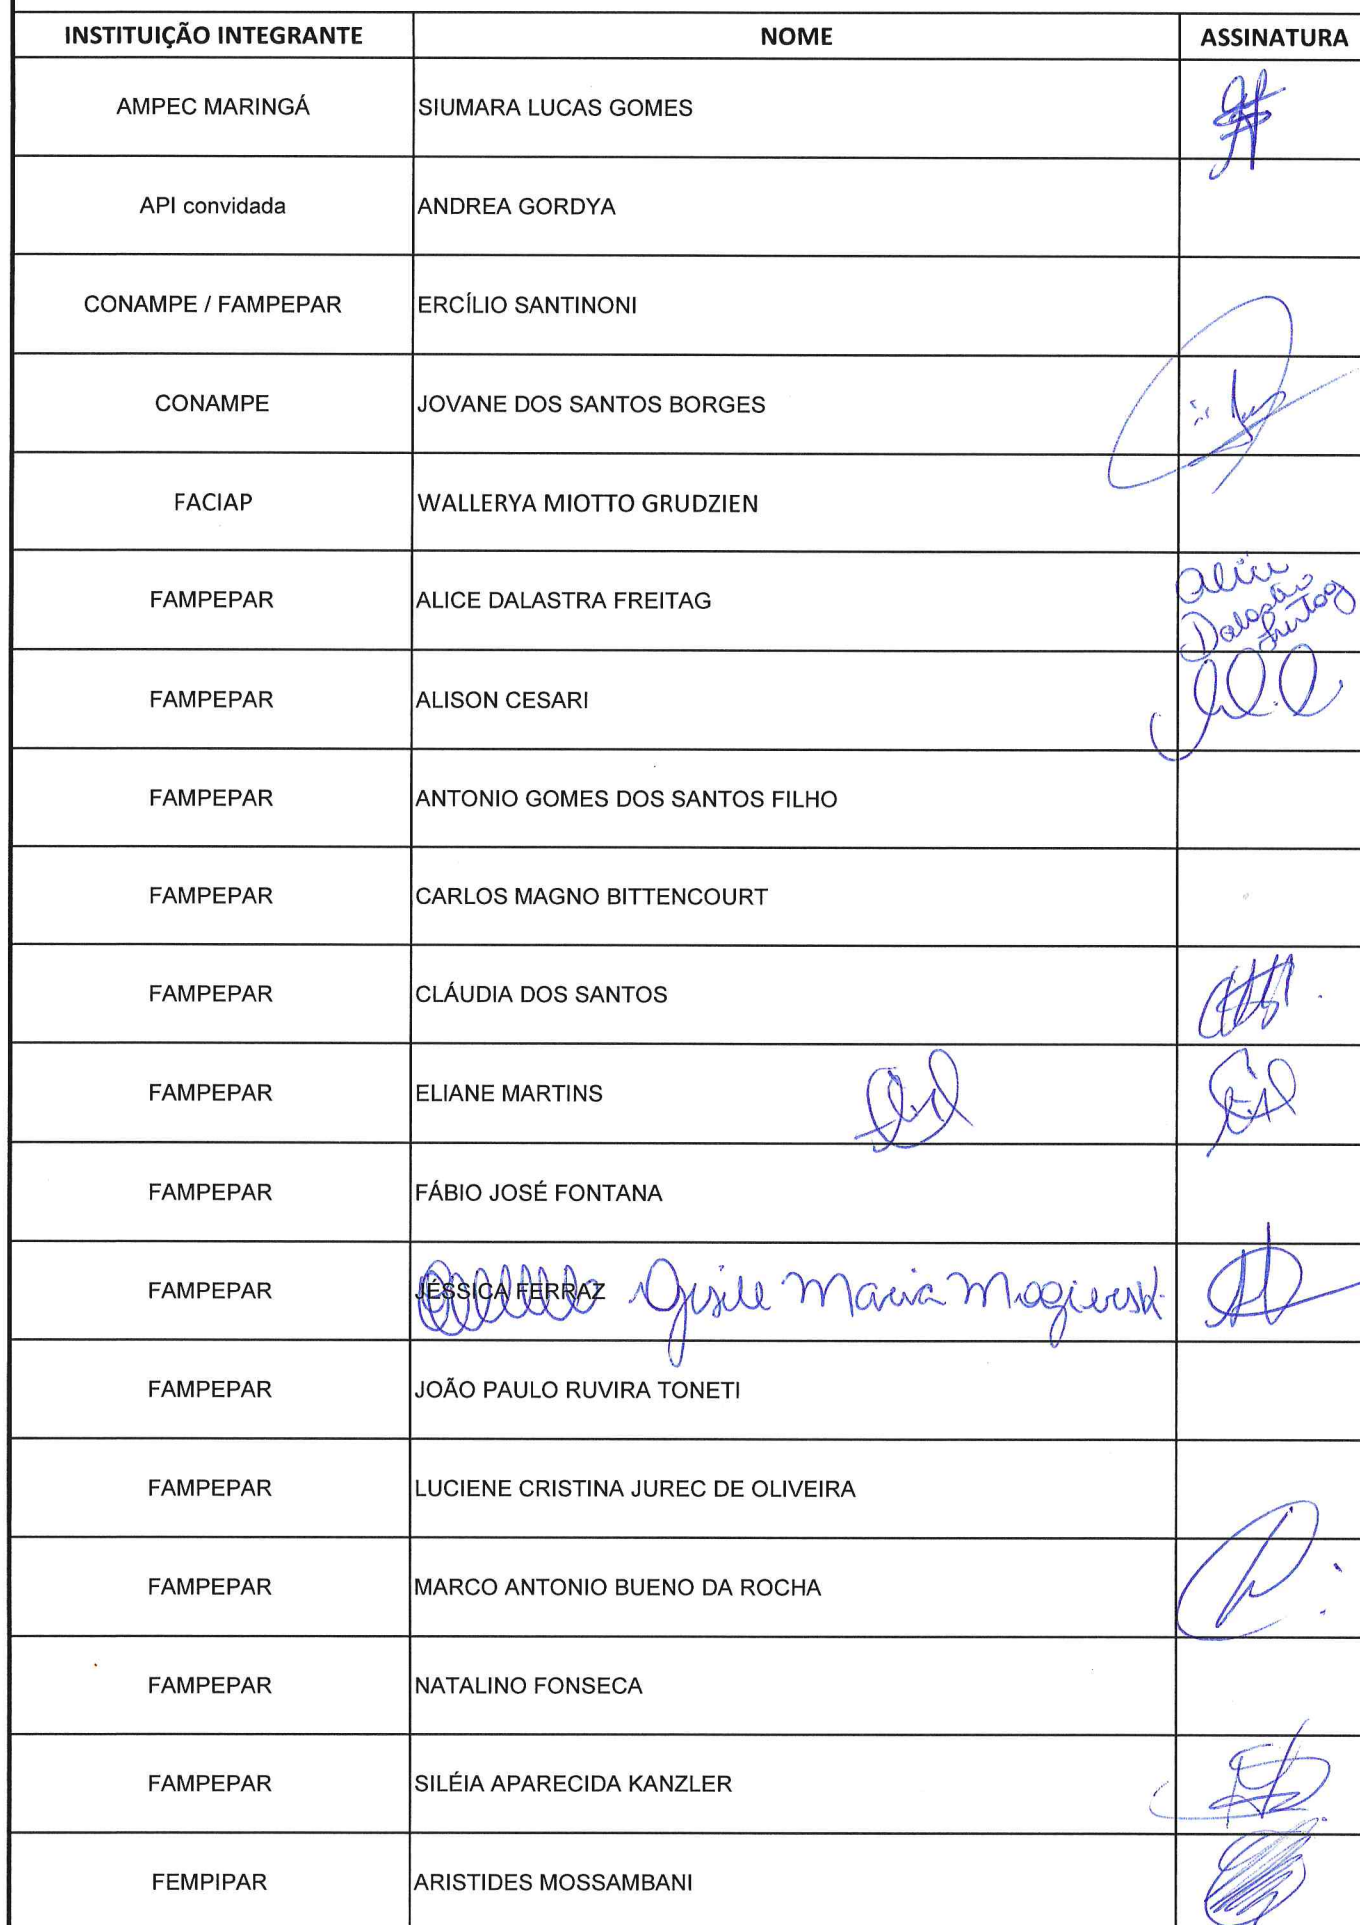 INSTITUIÇÃO INTEGRANTE NOME ASSINATURA
AMPEC MARINGÁ SIUMARA LUCAS GOMES
API convidada ANDREA GORDYA
CONAMPE / FAMPEPAR ERCÍLIO SANTINONI
CONAMPE JOVANE DOS SANTOS BORGES
FACIAP WALLERYA MIOTTO GRUDZIEN
FAMPEPAR ALICE DALASTRA FREITAG Alice
Dalastra
Freitag
FAMPEPAR ALISON CESARI
FAMPEPAR ANTONIO GOMES DOS SANTOS FILHO
FAMPEPAR CARLOS MAGNO BITTENCOURT
FAMPEPAR CLÁUDIA DOS SANTOS
FAMPEPAR ELIANE MARTINS
FAMPEPAR FÁBIO JOSÉ FONTANA
FAMPEPAR JÉSSICA FERRAZ Gisile Maria
FAMPEPAR JOÃO PAULO RUVIRA TONETI
FAMPEPAR LUCIENE CRISTINA JUREC DE OLIVEIRA
FAMPEPAR MARCO ANTONIO BUENO DA ROCHA
FAMPEPAR NATALINO FONSECA
FAMPEPAR SILÉIA APARECIDA KANZLER
FEMPIPAR ARISTIDES MOSSAMBANI